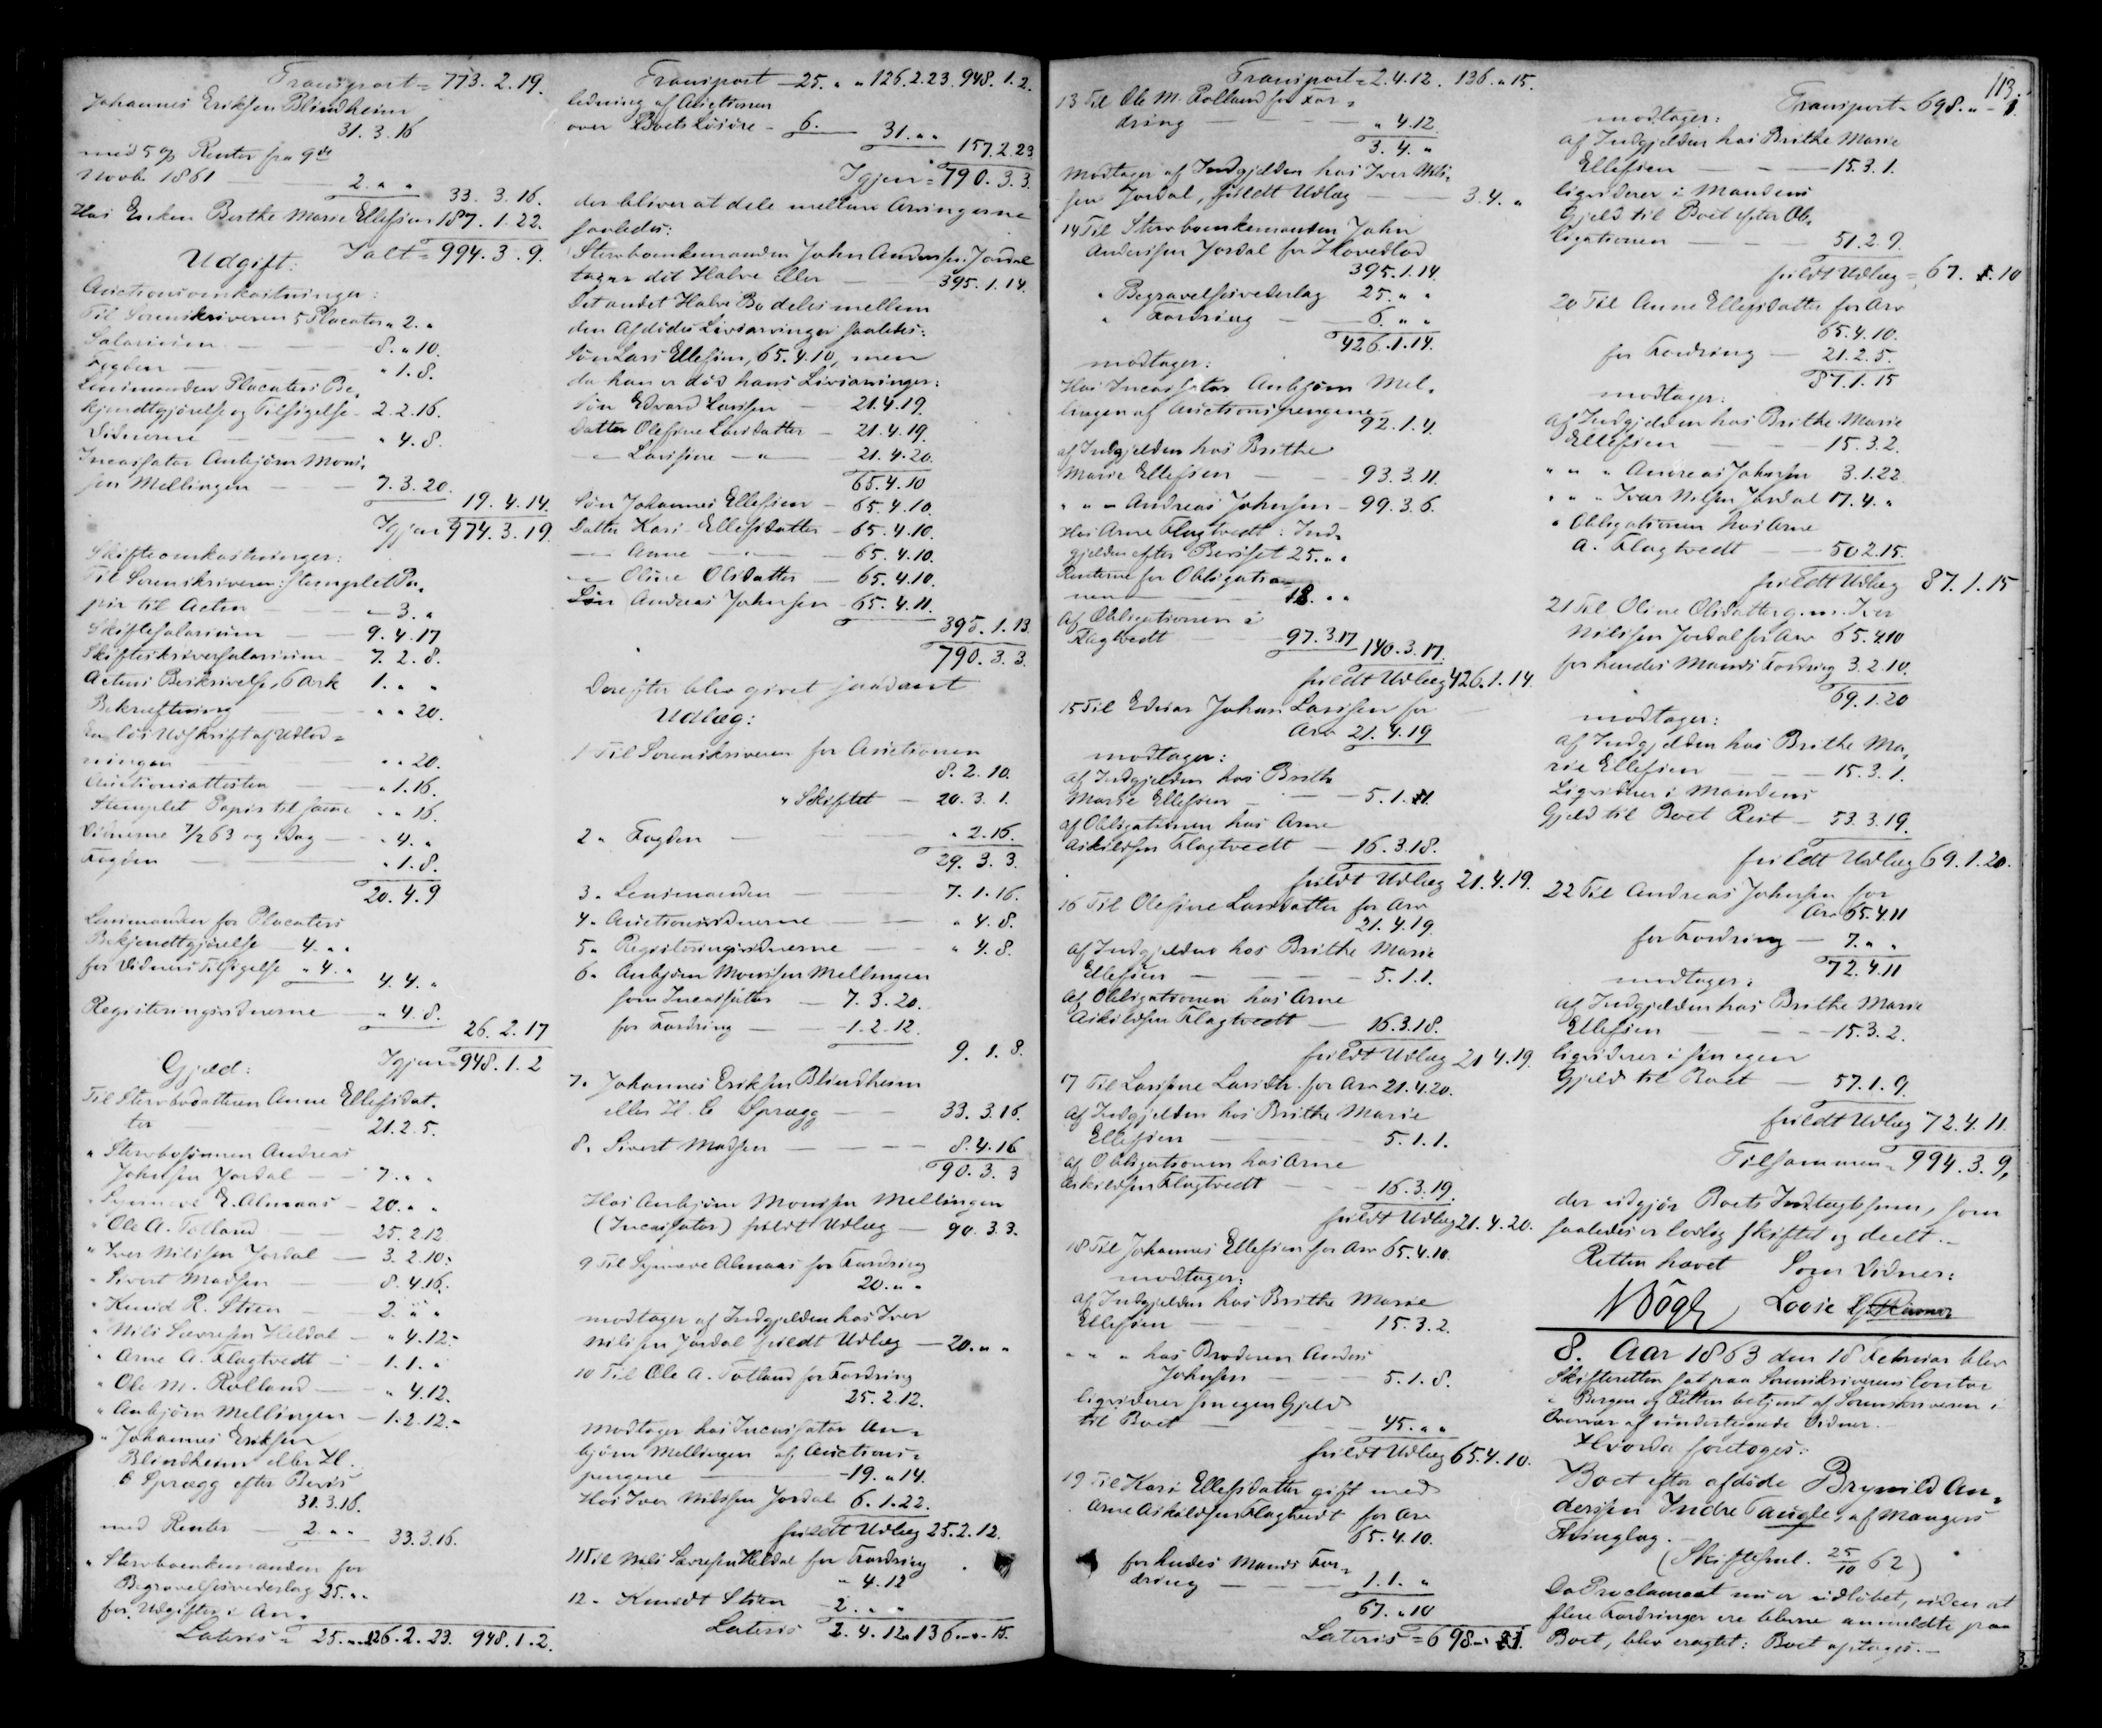 Transport = 773. 2. 19.
Johannes Eriksen Blindheim
31. 3. 16
med 5 % Renter fra 9de
Novb. 1861 — 2. " " 33. 3. 16.
Hos Enken Berthe Marie Ellefsen 187. 1. 22.
Ialt = 994. 3. 9.
Udgift:
Auctionsomkostninger:
Til Sorenskriveren 5 Placater " 2. "
Salarium — 8. " 10.
Fogden — " 1. 8.
Lensmanden Placatens Be,
kjendtgjørelse og Tilsigelse - 2. 2. 16.
Vidnerne — " 4. 8.
Incassator Anbjørn Mons,
sen Mellingen — 7. 3. 20.
19. 4. 14.
Igjen 974. 3. 19
Skifteomkostninger:
Til Sorenskriveren: stemplet Pa,
pir til Acten — " 3. "
Skiftesalarium — 9. 4. 17
Skifteskriversalarium - 7. 2. 8.
Actens Beskrivelse, 6 Ark 1. " "
Bekræftning — " " 20.
En løs Udskrift af Udlod=
ningen — " " 20.
Auctionsattesten — " 1. 16.
Stemplet Papir til samme " " 16.
Vidnerne 7/2 63 og idag — " 4. "
Fogden — " 1. 8.
20. 4. 9
Lensmanden for Placatens
Bekjendtgjørelse — 4. " "
for Vidners Tilsigelse " 4. "
4. 4. "
Registeringsvidnerne — " 4. 8.
26. 2. 17
Igjen = 948. 1. 2
Gjæld:
Til Stervbodatteren Anne Ellefsdat,
ter — 21. 2. 5.
" Stervbosønnen Andreas
Johnsen Jordal — 7. " "
" Synneve E. Almaas — 20. " "
" Ole A. Totland — 25. 2. 12
" Iver Nilssen Jordal — 3. 2. 10.
" Sivert Madsen — 8. 4. 16.
" Knud R. Stien — 2. " "
" Nils Sævresen Heldal — " 4. 12.
" Arne A. Flagtvedt — 1. 1. "
" Ole M. Rolland — " 4. 12.
" Anbjørn Mellingen — 1. 2. 12.
" Johannes Eriksen
Blindheim eller H.
C Sprægg efter Beviis
31. 3. 16.
med Renter — 2. " " 33. 3. 16.
" Stervboenkemanden for
Begravelsesvederlag 25. " "
for Udgifter i An,
Lateris = 25. " " 126. 2. 23. 948. 1. 2.
Transport — 25. " " 126. 2. 23. 948. 1. 2.
ledning af Auctionen
over Boets Løsøre - 6. 31. " "
157. 2. 23
Igjen = 790. 3. 3.
der bliver at dele mellem Arvingerne
saaledes:
Stervboenkemanden John Anderssen Jordal
tager det Halve eller — 395. 1. 14.
Det andet Halve Bo deles mellem
den Afdødes Livsarvinger saaledes:
Søn Lars Ellefsen, 65. 4. 10, men
da han er død hans Livsarvinger:
Søn Edvard Larssen — 21. 4. 19.
Datter Olesine Larsdatter — 21. 4. 19.
— Larsine — " — 21. 4. 20.
65. 4. 10
Søn Johannes Ellefsen — 65. 4. 10.
Datter Kari Ellefsdatter — 65. 4. 10.
— Anne — 65. 4. 10.
— Oline Olsdatter — 65. 4. 10.
Søn Andreas Johnsen — 65. 4. 11.
395. 1. 13.
790. 3. 3.
Derefter blev givet saadant
Udlæg:
1 Til Sorenskriveren for Auctionen
8. 2. 10.
" Skiftet — 20. 3. 1.
2 " Fogden — " 2. 16.
29. 3. 3.
3 " Lensmanden — 7. 1. 16.
4 " Auctionsvidnerne — " 4. 8.
5 " Registeringsvidnerne — " 4. 8.
6 " Anbjørn Monssen Mellingen
som Incassator — 7. 3. 20.
for Fordring — 1. 2. 12.
9. 1. 8.
7. Johannes Eriksen Blindheim
eller H. C Sprægg — 33. 3. 16.
8. Sivert Madsen — 8. 4. 16
90. 3. 3
Hos Anbjørn Monssen Mellingen
(Incassator) fuldt Udlæg — 90. 3. 3.
9 Til Synneve Almaas for Fordring
20. " "
modtager af Indgjelden hos Iver
Nilssen Jordal fuldt Udlæg — 20. " "
10 Til Ole A. Totland for Fordring
25. 2. 12.
modtager hos Incassator An=
bjørn Mellingen af Auctions=
pengene — 19. " 14.
Hos Iver Nilssen Jordal 6. 1. 22.
fuldt Udlæg 25. 2. 12.
11 Til Nils Sævresen Heldal for Fordring
" 4. 12
12 " Knudt Stien — 2. " "
Lateris 2. 4. 12. 136. " 15.
Transport = 2. 4. 12. 136. " 15.
13 Til Ole M. Rolland for For=
dring — " 4. 12.
3. 4. "
modtager af Indgjelden hos Iver Nils,
sen Jordal, fuldt Udlæg — 3. 4. "
14 Til Stervboenkemanden John
Anderssen Jordal for Hovedlod
395. 1. 14.
" Begravelsesvederlag 25. " "
" Fordring — 6. " "
426. 1. 14.
modtager:
Hos Incassator Anbjørn Mel,
lingen af Auctionspengene
92. 1. 4.
af Indgjelden hos Brithe
Marie Ellefsen — 93. 3. 11.
" " " Andreas Johnsen — 99. 3. 6.
Hos Arne Flagtvedt: Ind,
gjelden efter Beviset 25. " "
Renterne for Obligatio
nen — 18. " "
af Obligationen i
Flagtvedt — 97. 3. 17 140. 3. 17.
fuldt Udlæg 426. 1. 14.
15 Til Edvar Johan Larssen for
Arv 21. 4. 19
modtager:
af Indgjelden hos Brithe
Marie Ellefsen — 5. 1. 1.
af Obligationen hos Arne
Askildsen Flagtvedt — 16. 3. 18.
fuldt Udlæg 21. 4. 19.
16 Til Olesine Larsdatter for Arv
21. 4. 19.
af Indgjelden hos Brithe Marie
Ellefsen — 5. 1. 1.
af Obligationen hos Arne
Askildsen Flagtvedt — 16. 3. 18.
fuldt Udlæg 21. 4. 19.
17 Til Larsine Larsdtr. for Arv 21. 4. 20.
af Indgjelden hos Brithe Marie
Ellefsen — 5. 1. 1.
af Obligationen hos Arne
Askildsen Flagtvedt — 16. 3. 19.
fuldt Udlæg 21. 4. 20.
18 Til Johannes Ellefsen for Arv 65. 4. 10.
modtager:
af Indgjelden hos Brithe Marie
Ellefsen — 15. 3. 2.
" " " hos Broderen Andreas
Johnsen — 5. 1. 8.
liqviderer sin egen Gjeld
til Boet — 45. " "
fuldt Udlæg 65. 4. 10.
19 Til Kari Ellefsdatter gift med
Arne Askildsen Flagtvedt for Arv
65. 4. 10.
for hendes Mands For,
dring — 1. 1. "
67. " 10
Lateris = 698. " 1.
113.
Transport = 698. " - 1
modtager:
af Indgjelden hos Brithe Marie
Ellefsen — 15. 3. 1.
liqviderer i Mandens
Gjeld til Boet efter Ob,
ligationen — 51. 2. 9.
fuldt Udlæg = 67. " 10
20 Til Anne Ellefsdatter for Arv
65. 4. 10.
for Fordring — 21. 2. 5.
87. 1. 15
modtager:
af Indgjelden hos Brithe Marie
Ellefsen — 15. 3. 2.
" " " Andreas Johnsen 3. 1. 22
" " " Iver Nilsen Jordal 17. 4. "
" Obligationen hos Arne
A. Flagtvedt — 50. 2. 15.
fuldt Udlæg 87. 1. 15
21 Til Oline Olsdatter g. m. Iver
Nilssen Jordal for Arv 65. 4. 10
for hendes Mands Fordring 3. 2. 10.
69. 1. 20
modtager:
af Indgjelden hos Brithe Ma,
rie Ellefsen — 15. 3. 1.
Liqviderer i Mandens
Gjeld til Boet Rest — 53. 3. 19.
fuldt Udlæg 69. 1. 20.
22 Til Andreas Johnsen for
Arv 65. 4. 11
for Fordring — 7. " "
72. 4. 11
modtager:
af Indgjelden hos Brithe Marie
Ellefsen — 15. 3. 2.
liqviderer i sin egen
Gjeld til Boet — 57. 1. 9.
fuldt Udlæg 72. 4. 11.
Tilsammen = 994. 3. 9,
der udgjør Boets Indtægtssum, som
saaledes er lovlig skiftet og deelt. —
Retten hævet Som Vidner:
8. Aar 1863 den 18 Februar blev
Skifteretten sat paa Sorenskriverens Contor
i Bergen og Retten betjent af Sorenskriveren i
Overvær af undertegnede Vidner.
Hvorda foretoges:
Boet efter afdøde Brynild An=
derssen Indre Taugle, af Mangers
Thinglag.
(Skiftesml. 25/10 62)
Da Proclamaet nu er udløbet, uden at
flere Fordringer ere blevne anmeldte paa
Boet, blev eragtet: Boet optages. —